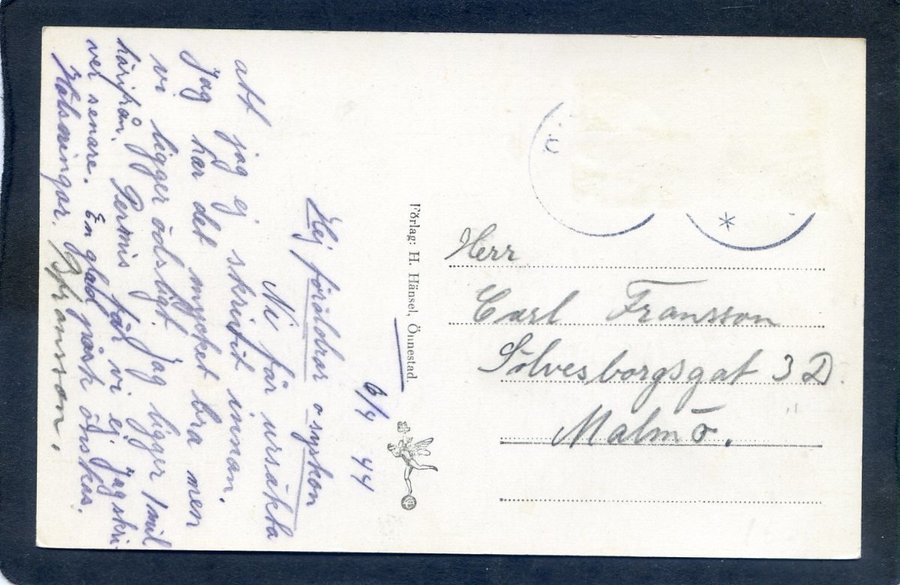 6/4 44
Hej föräldrar o syskon
Ni får ursäkta
att jag ej skrivit innan.
Jag har det mycket bra men
vi ligger ödsligt. Jag ligger 1 mil
härifrån. Permis får vi ej. Jag skri-
ver senare. En glad påsk önskas.
Hälsningar. Fransson.
Förlag: H. Hänsel, Önnestad.
Herr
Carl Fransson
Sölvesborgsgat 3 D.
Malmö.